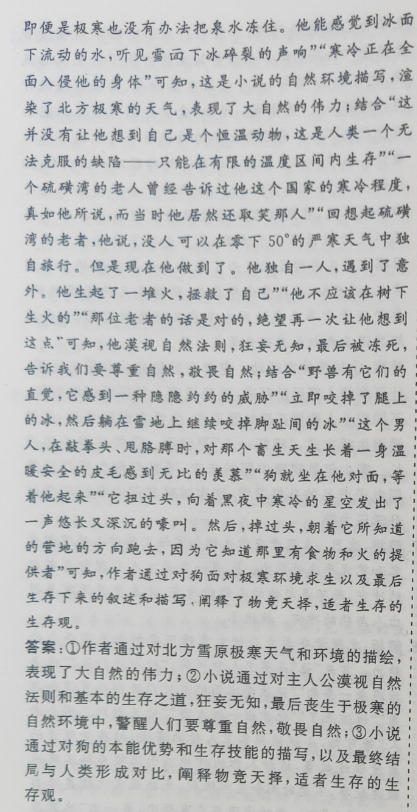 即便是极寒也没有办法把泉水冻住。他能感觉到冰面
下流动的水,听见雪面下冰碎裂的声响”“寒冷正在全
面入侵他的身体”可知,这是小说的自然环境描写,渲
染了北方极寒的天气,表现了大自然的伟力;结合“这
并没有让他想到自己是个恒温动物,这是人类一个无
法克服的缺陷——只能在有限的温度区间内生存”“一
个硫磺湾的老人曾经告诉过他这个国家的寒冷程度,
真如他所说,而当时他居然还取笑那人”“回想起硫磺
湾的老者,他说,没人可以在零下 50°的严寒天气中独
自旅行。但是现在他做到了。他独自一人,遇到了意
外。他生起了一堆火,拯救了自己”“他不应该在树下
生火的”“那位老者的话是对的,绝望再一次让他想到
这点”可知,他漠视自然法则,狂妄无知,最后被冻死,
告诉我们要尊重自然,敬畏自然;结合“野兽有它们的
直觉,它感到一种隐隐约约的威胁”“立即咬掉了腿上
的冰,然后躺在雪地上继续咬掉脚趾间的冰”“这个男
人,在敲拳头、甩胳膊时,对那个畜生天生长着一身温
暖安全的皮毛感到无比的羡慕”“狗就坐在他对面,等
着他起来”“它扭过头,向着黑夜中寒冷的星空发出了
一声悠长又深沉的嚎叫。然后,掉过头,朝着它所知道
的营地的方向跑去,因为它知道那里有食物和火的提
供者”可知,作者通过对狗面对极寒环境求生以及最后
生存下来的叙述和描写,阐释了物竞天择,适者生存的
生存观。
答案:①作者通过对北方雪原极寒天气和环境的描绘,
表现了大自然的伟力;②小说通过对主人公漠视自然
法则和基本的生存之道,狂妄无知,最后丧生于极寒的
自然环境中,警醒人们要尊重自然,敬畏自然;③小说
通过对狗的本能优势和生存技能的描写,以及最终结
局与人类形成对比,阐释物竞天择,适者生存的生
存观。